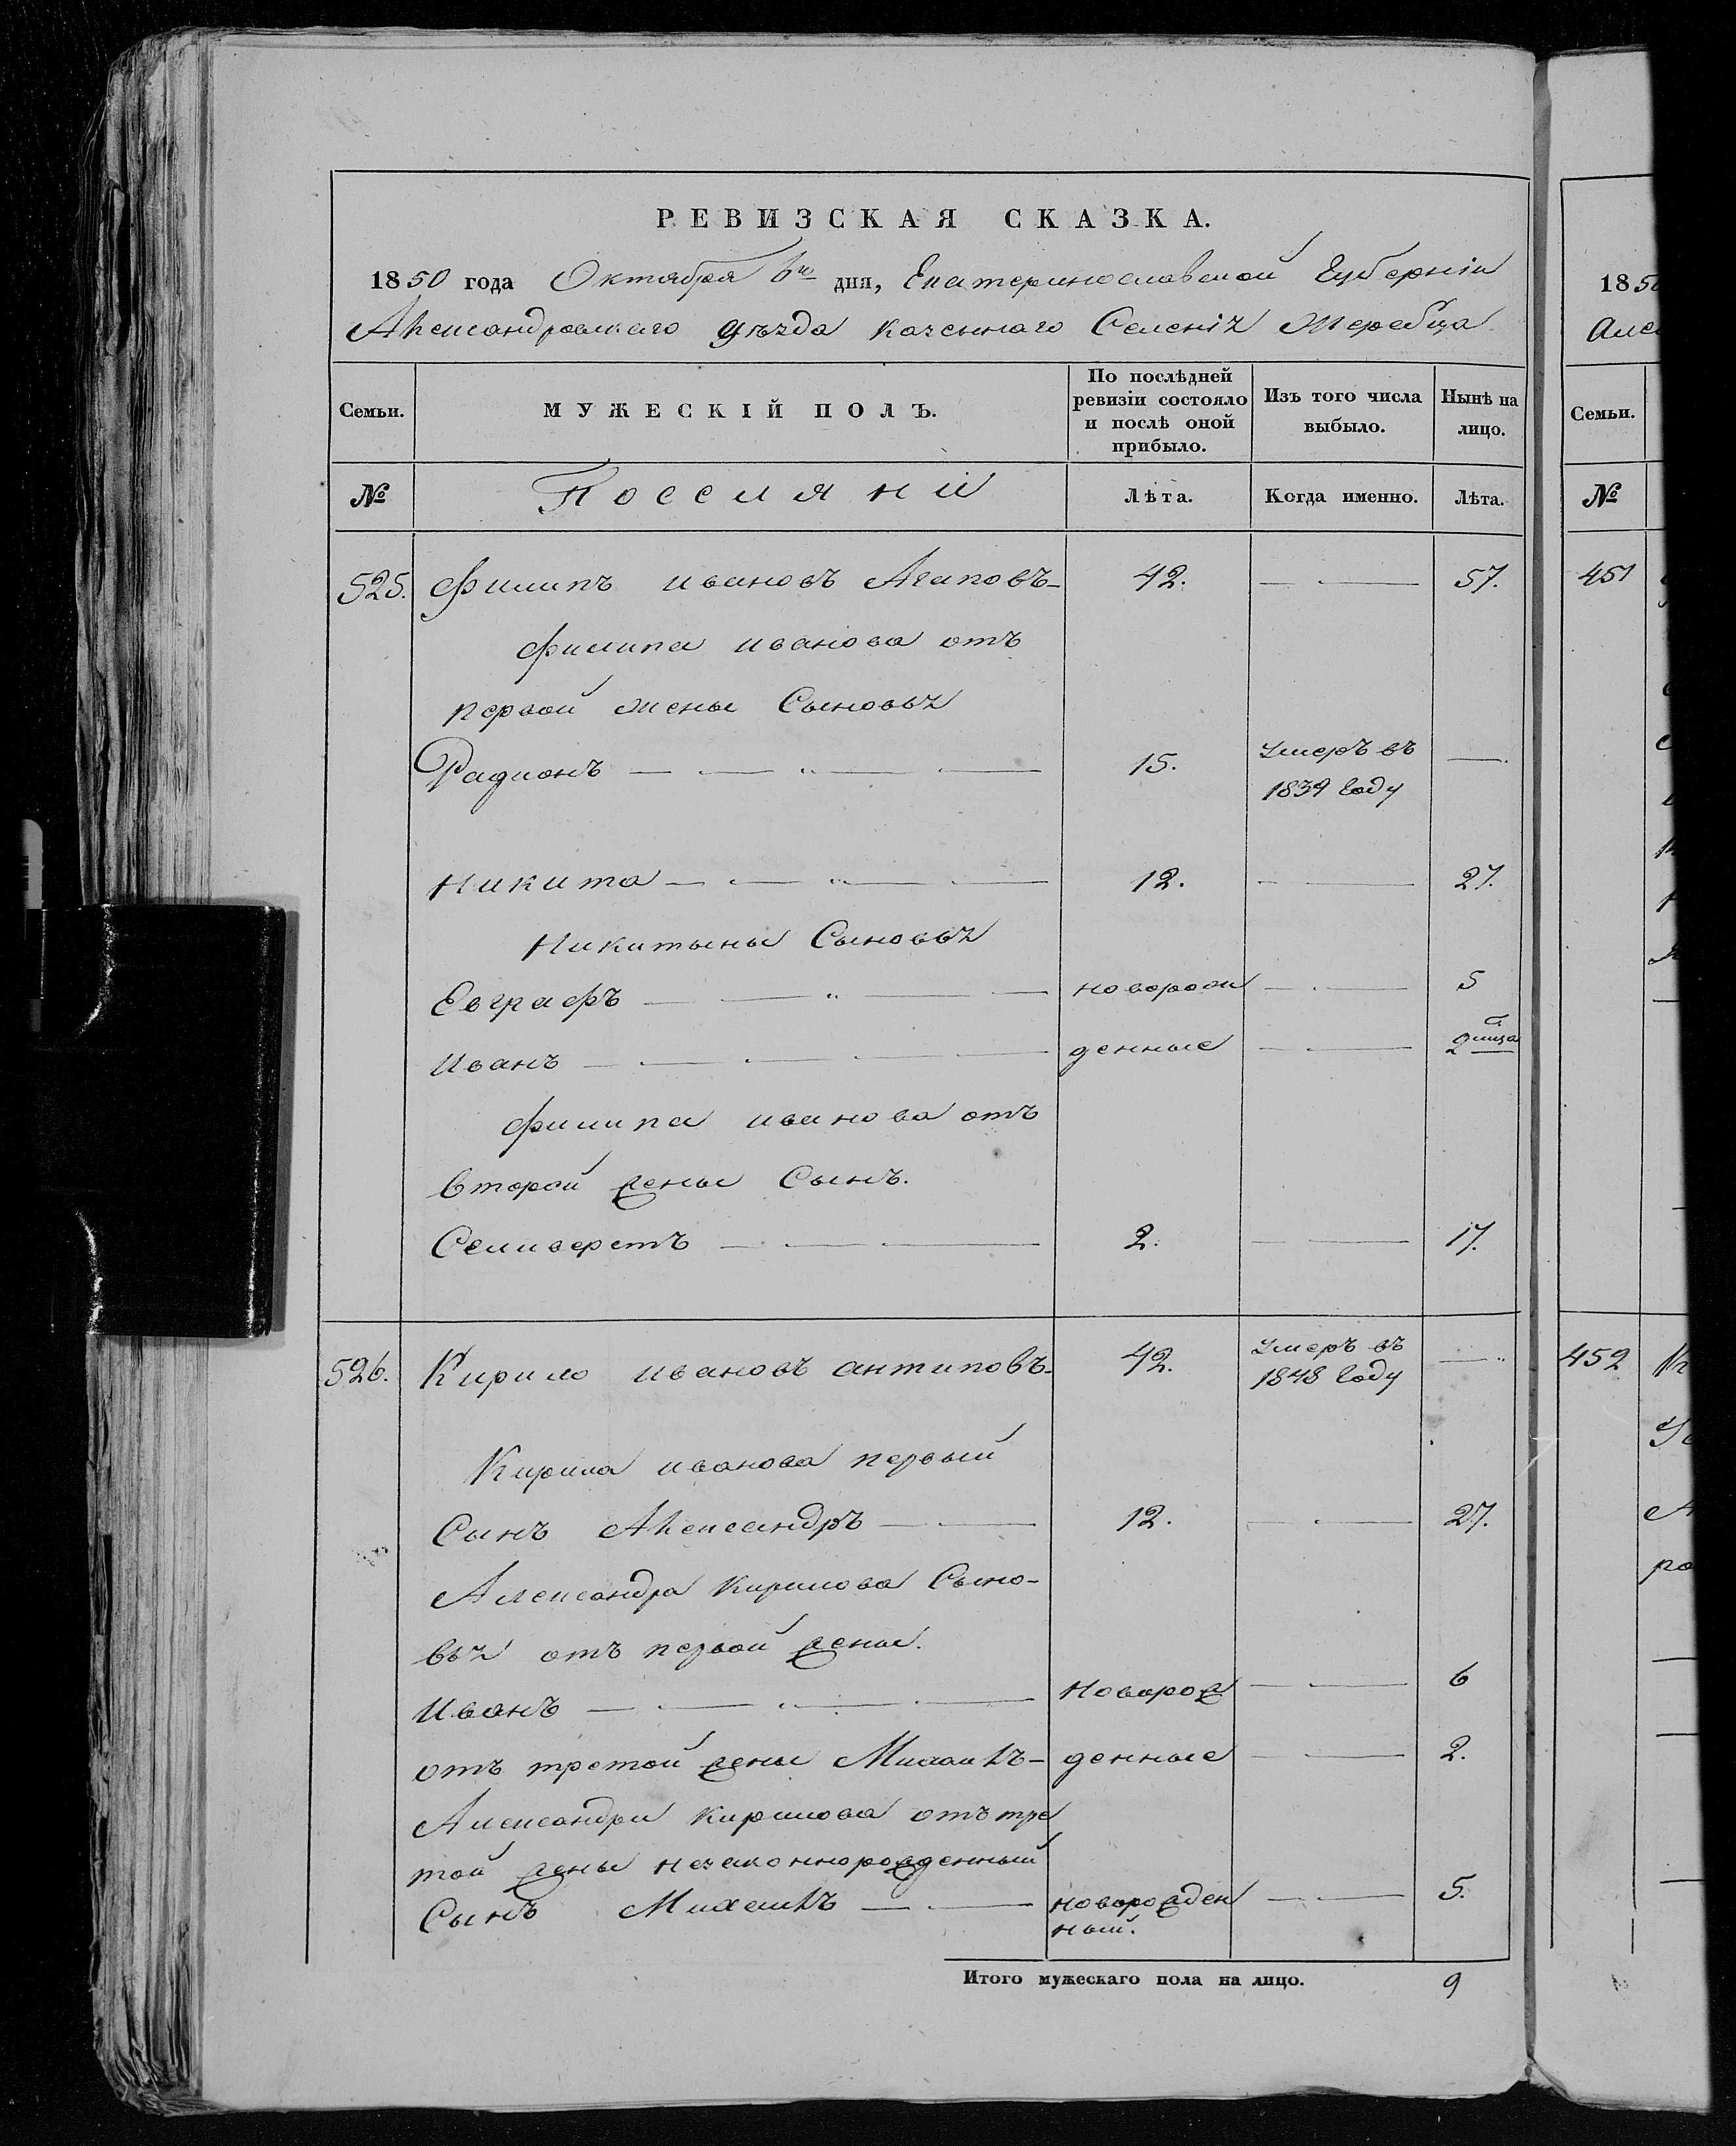 РЕВИЗСКАЯ СКАЗКА.
1850 года Октября 6го дня, Екатеринославской Губерніи
Александровскаго уѣзда казеннаго Селенія Жеребца
Семьи. МУЖЕСКІЙ ПОЛЪ. По послѣдней ревизіи состояло и послѣ оной прибыло. Изъ того числа выбыло. Нынѣ на лицо.
№ Поселяни Лѣта. Когда именно. Лѣта.
525. Филипъ Ивановъ Агаповъ 42. 57.
Филипа Иванова отъ
первой жены Сыновья
Радионъ 15. умеръ въ
1839 Году
Никита 12. 27.
Никитыны Сыновья
Евграфъ новорож 5
Иванъ денные 2
Филипа Иванова отъ
второй жены Сынъ.
Селиверстъ 2. 17.
526. Кирило Ивановъ Антиповъ 42. умеръ въ
1848 Году
Кирила Иванова первый
Сынъ Александръ 12. 27.
Александра Кирилова Сыно-
вья отъ первой жены.
Иванъ Новорож 6
отъ третой жены Михаилъ денные 2.
Александра Кирилова отъ тре
той жены незаконнорожденный
Сынъ Михаилъ новорожден 5.
ный.
Итого мужескаго пола на лицо. 9
1850
Алек
Семьи.
№
451
452